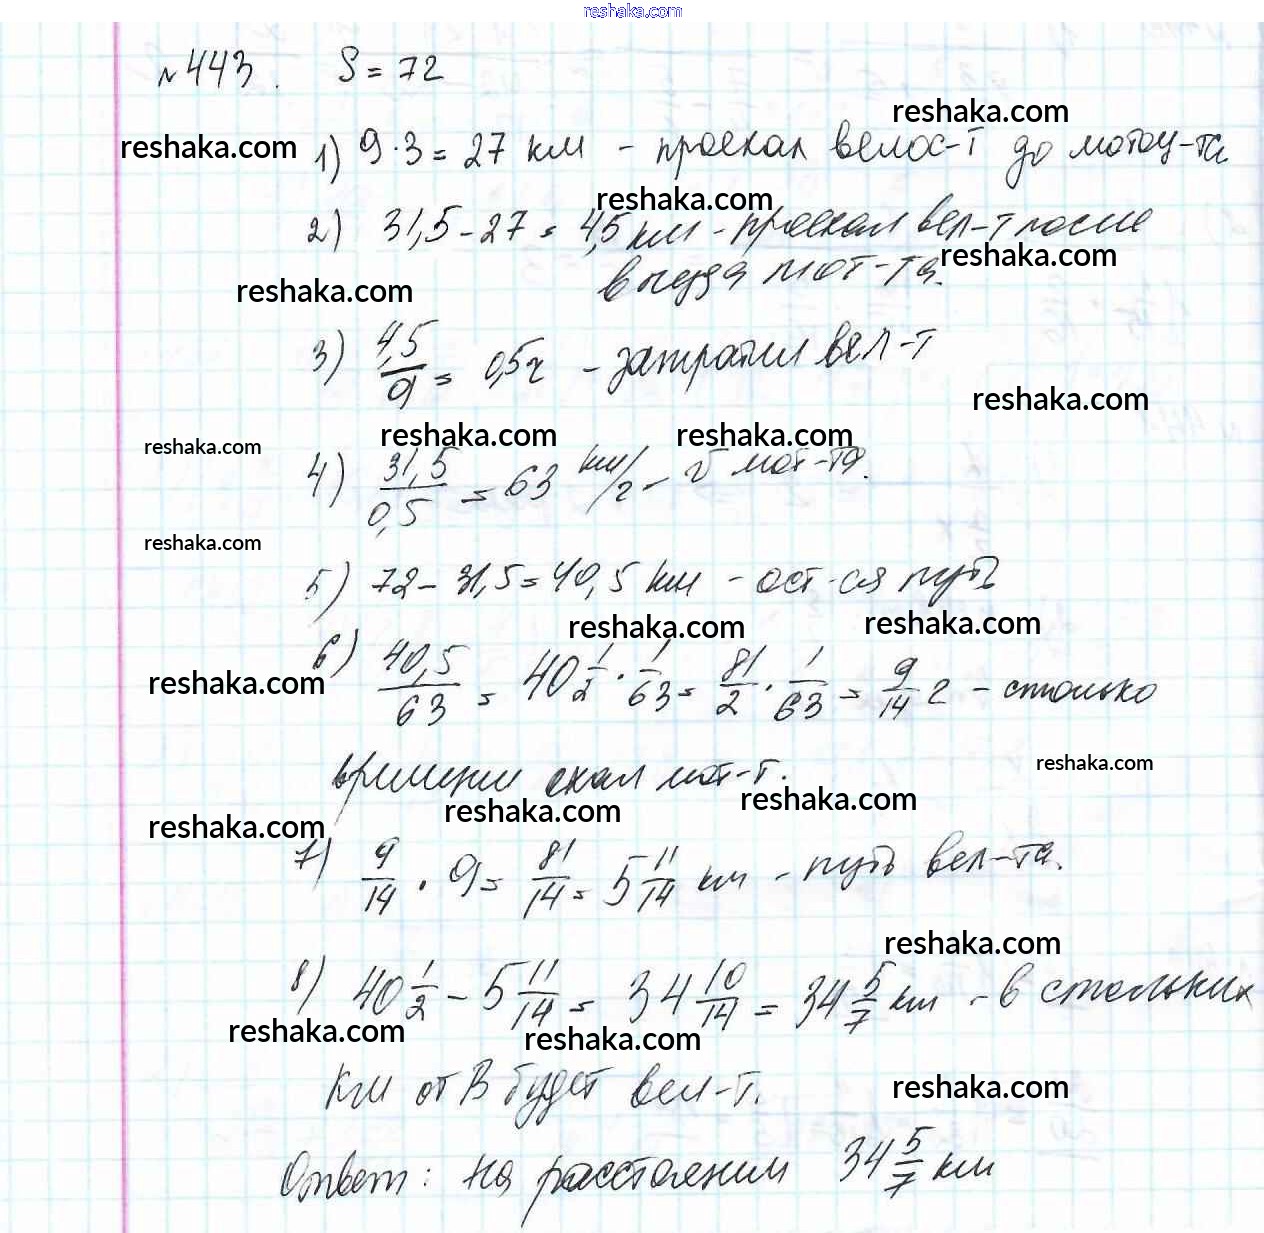 reshaka.com
№443. S = 72
reshaka.com
reshaka.com
1) 9·3 = 27 км - проехал велос-т до мотоц-та
reshaka.com
2) 31,5 - 27 = 4,5 км - проехал вел-т после
reshaka.com
выезда мот-та.
reshaka.com
3) 4,5/9 = 0,5 ч - затратил вел-т
reshaka.com
reshaka.com
reshaka.com
reshaka.com
4) 31,5/0,5 = 63 км/ч - v мот-та.
reshaka.com
5) 72 - 31,5 = 40,5 км - ост-ся путь
reshaka.com
reshaka.com
6) 40,5/63 = 40 1/2 · 1/63 = 81/2 · 1/63 = 9/14 ч - столько
reshaka.com
времени ехал мот-т.
reshaka.com
reshaka.com
reshaka.com
reshaka.com
7) 9/14 · 9 = 81/14 = 5 11/14 км - путь вел-та.
reshaka.com
8) 40 1/2 - 5 11/14 = 34 10/14 = 34 5/7 км - в стольких
reshaka.com
reshaka.com
км от В будет вел-т.
reshaka.com
Ответ: на расстоянии 34 5/7 км